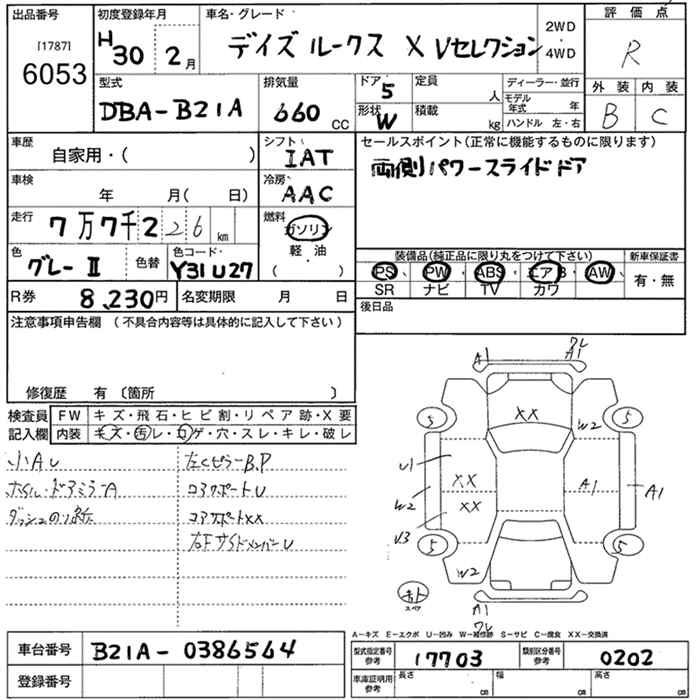 出品番号
[1787]
6053
初度登録年月
H30 2月
車名・グレード
デイズルークス X Vセレクション
2WD
・
4WD
評価点
R
外装 内装
B C
型式
DBA-B21A
排気量
660 CC
ドア 5
形状 W
定員 人
積載 kg
ディーラー・並行
モデル年式 年
ハンドル 左・右
車歴
自家用・( )
シフト
IAT
セールスポイント(正常に機能するものに限ります)
両側パワースライドドア
車検
年 月( 日)
冷房
AAC
走行
7万7千226km
燃料
ガソリン
軽・油
( )
色
グレーII
色替
色コード
Y31U27
装備品(純正品に限り丸をつけて下さい)
PS、PW、ABS、エアB、AW、
SR ナビ TV カワ
新車保証書
有・無
R券 8,230円
名変期限 月 日
後日品
注意事項申告欄 (不具合内容等は具体的に記入して下さい)
修復歴 有 〔箇所 〕
検査員記入欄
FW キズ・飛石・ヒビ割・リペア跡・X要
内装 キズ・汚レ・コゲ・穴・スレ・キレ・破レ
小AU
ホイル・ドアミラーA
ダッシュのり跡
左CピラーB.P
コアサポートU
コアサポートXX
右FサイドメンバーU
A1
ワレ
A1
XX
W2
5
5
U1
XX
A1
A1
W2
XX
U3
5
5
W2
キト
スペア
A1
ワレ
A-キズ E-エクボ U-凹み W-補修跡 S-サビ C-腐食 XX-交換済
車台番号 B21A-0386564
登録番号
型式指定番号参考 17703
類別区分番号参考 0202
車庫証明用参考
長さ cm
幅 cm
高さ cm